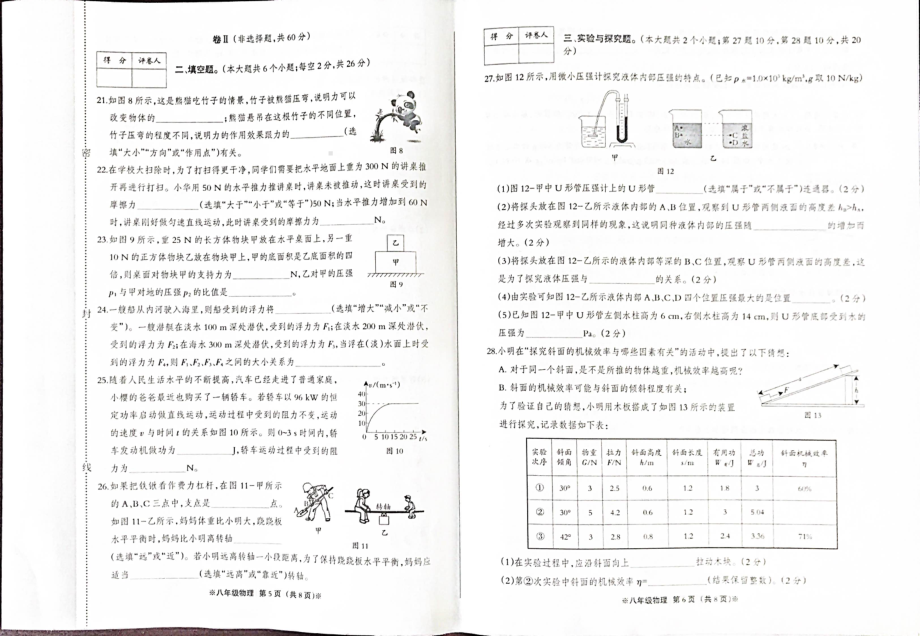 卷Ⅱ（非选择题，共60分）
得 分 评卷人
二、填空题。（本大题共6个小题；每空2分，共26分）
21.如图8所示，这是熊猫吃竹子的情景，竹子被熊猫压弯，说明力可以
改变物体的____________；熊猫悬吊在这根竹子的不同位置，
竹子压弯的程度不同，说明力的作用效果跟力的____________（选
填“大小”“方向”或“作用点”）有关。
图8
22.在学校大扫除时，为了打扫得更干净，同学们需要把水平地面上重为300 N的讲桌推
开再进行打扫。小华用50 N的水平推力推讲桌时，讲桌未被推动，这时讲桌受到的
摩擦力____________（选填“大于”“小于”或“等于”）50 N；当水平推力增加到60 N
时，讲桌刚好做匀速直线运动，此时讲桌受到的摩擦力为____________N。
23.如图9所示，重25 N的长方体物块甲放在水平桌面上，另一重
10 N的正方体物块乙放在物块甲上，甲的底面积是乙底面积的四
倍，则桌面对物块甲的支持力为____________N，乙对甲的压强
p₁与甲对地的压强p₂的比值是____________。
乙
甲
图9
24.一艘船从内河驶入海里，则船受到的浮力将____________（选填“增大”“减小”或“不
变”）。一艘潜艇在淡水100 m深处潜伏，受到的浮力为F₁；在淡水200 m深处潜伏，
受到的浮力为F₂；在海水300 m深处潜伏，受到的浮力为F₃，当浮在（淡）水面上时受
到的浮力为F₄，则F₁、F₂、F₃、F₄之间的大小关系为____________。
25.随着人民生活水平的不断提高，汽车已经走进了普通家庭，
小樱的爸爸最近也购买了一辆轿车。若轿车以96 kW的恒
定功率启动做直线运动，运动过程中受到的阻力不变，运动
的速度v与时间t的关系如图10所示。则0~3 s时间内，轿
车发动机做功为____________J，轿车运动过程中受到的阻
力为____________N。
v/(m·s⁻¹)
40
30
20
10
0 5 10 15 20 25 t/s
图10
26.如果把铁锹看作费力杠杆，在图11-甲所示
的A、B、C三点中，支点是____________点。
如图11-乙所示，妈妈体重比小明大，跷跷板
水平平衡时，妈妈比小明离转轴____________
（选填“远”或“近”）。若小明远离转轴一小段距离，为了保持跷跷板水平平衡，妈妈应
适当____________（选填“远离”或“靠近”）转轴。
转轴
甲
乙
图11
※八年级物理 第5页（共8页）※
密
封
线
得 分 评卷人
三、实验与探究题。（本大题共2个小题；第27题10分，第28题10分，共20
分）
27.如图12所示，用微小压强计探究液体内部压强的特点。（已知ρ水=1.0×10³ kg/m³，g取10 N/kg）
A
B
水
C
D
浓盐水
甲
乙
图12
(1)图12-甲中U形管压强计上的U形管____________（选填“属于”或“不属于”）连通器。（2分）
(2)将探头放在图12-乙所示液体内部的A、B位置，观察到U形管两侧液面的高度差hB>hA，
经过多次实验观察到同样的现象，这说明同种液体内部的压强随____________的增加而
增大。（2分）
(3)将探头放在图12-乙所示的液体内部等深的B、C位置，观察U形管两侧液面的高度差，这
是为了探究液体压强与____________的关系。（2分）
(4)由实验可知图12-乙所示液体内部A、B、C、D四个位置压强最大的是位置____________。（2分）
(5)已知图12-甲中U形管左侧水柱高为6 cm，右侧水柱高为14 cm，则U形管底部受到水的
压强为____________Pa。（2分）
28.小明在“探究斜面的机械效率与哪些因素有关”的活动中，提出了以下猜想：
A. 对于同一个斜面，是不是所推的物体越重，机械效率越高呢？
B. 斜面的机械效率可能与斜面的倾斜程度有关；
为了验证自己的猜想，小明用木板搭成了如图13所示的装置
进行探究，记录数据如下表：
图13
实验次序 斜面倾角 物重G/N 拉力F/N 斜面高度h/m 斜面长度s/m 有用功W有/J 总功W总/J 斜面机械效率η
① 30° 3 2.5 0.6 1.2 1.8 3 60%
② 30° 5 4.2 0.6 1.2 3 5.04
③ 42° 3 2.8 0.8 1.2 2.4 3.36 71%
(1)在实验过程中，应沿斜面向上____________拉动木块。（2分）
(2)第②次实验中斜面的机械效率η=____________（结果保留整数）。（2分）
※八年级物理 第6页（共8页）※